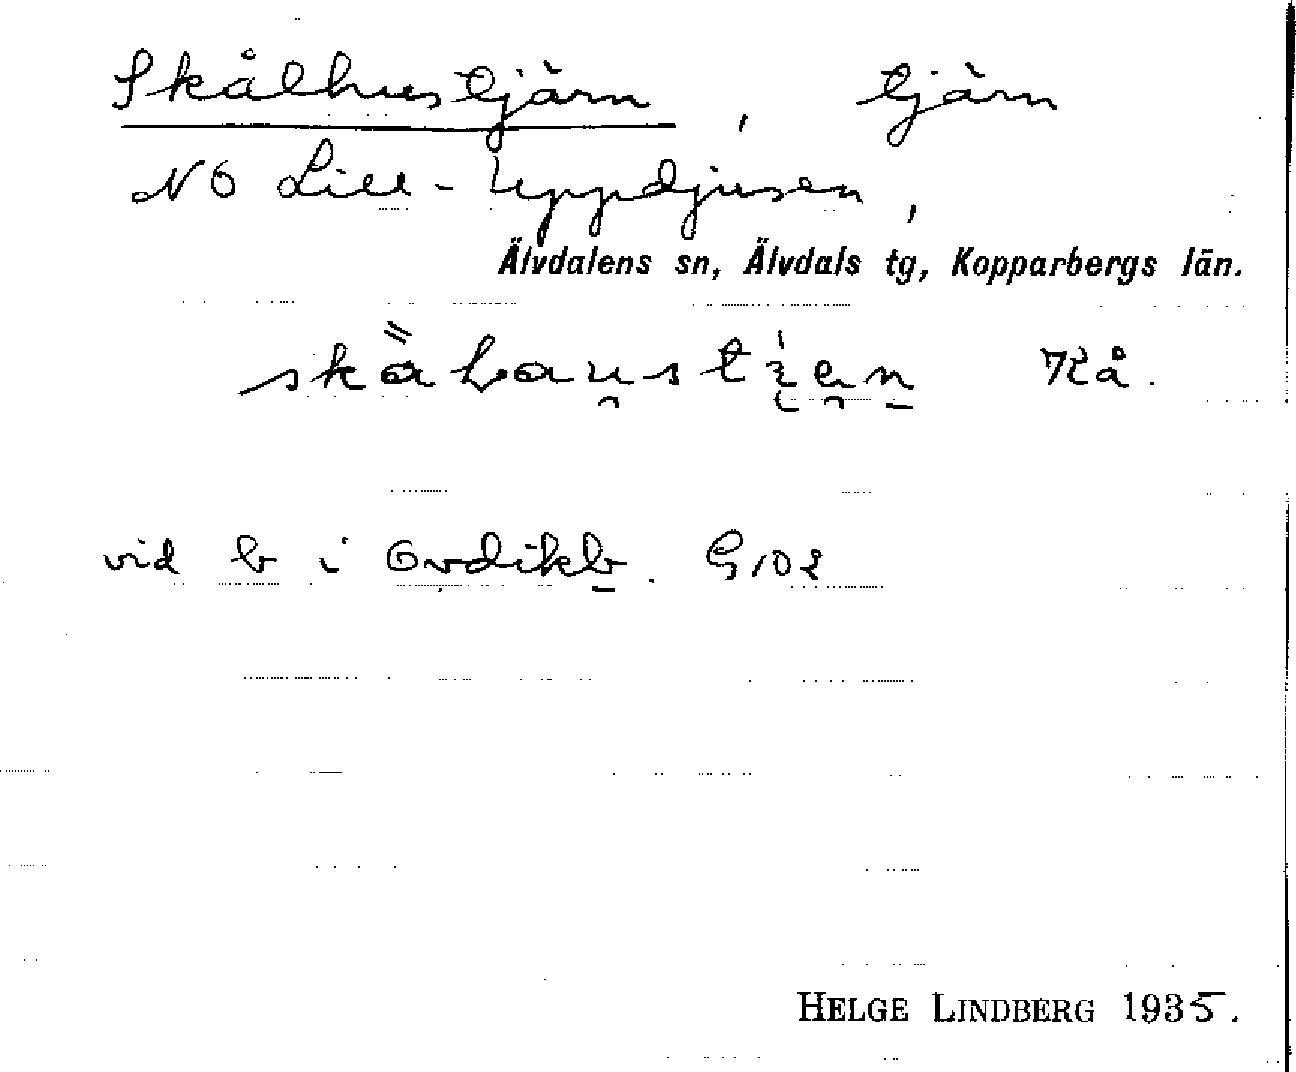 Skålhustjärn, tjärn
NO Lill-Uppdjusen,
Älvdalens sn, Älvdals tg, Kopparbergs län.
Kå.
vid b i G102
HELGE LINDBERG 1935.